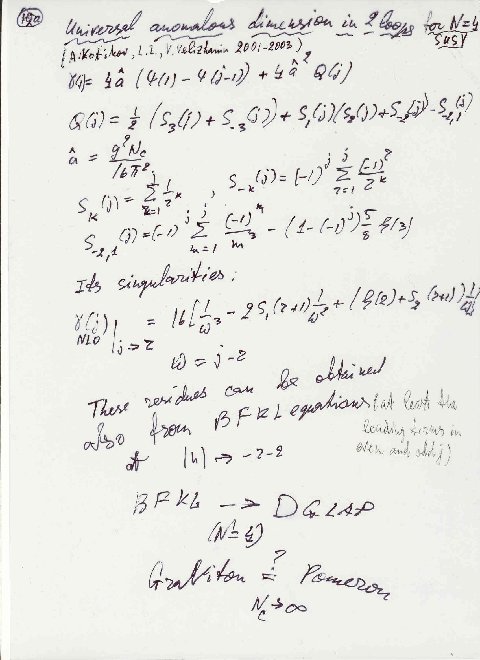 Universal anomalous dimension in 2 loops for N=4 SUSY
(A. Kotikov, L.L., V. Velizhanin 2001-2003)
γ(j) = 4â (Ψ(1) - Ψ(j-1)) + 4â² Q(j)
Q(j) = 1/2 (S₃(j) + S₋₃(j)) + S₁(j)(S₂(j) + S₋₂(j)) - S₋₂,₁(j)
â = g²Nc/16π²
Sₖ(j) = Σ 1/rᵏ , S₋ₖ(j) = (-1)ʲ Σ (-1)ʳ/rᵏ
S₋₂,₁(j) = (-1)ʲ Σ (-1)ᵐ/m³ - (1-(-1)ʲ) 5/8 ζ(3)
Its singularities:
γ(j) NLO | j→r = 16 [1/ω³ - 2S₁(r+1) 1/ω² + (ζ(2) + S₂(r+1)) 1/ω]
ω = j-r
These residues can be obtained
also from BFKL equations (at least the leading terms in even and odd j)
at |n| → -r-2
BFKL → DGLAP
(N=4)
Graviton =? Pomeron
Nc→∞